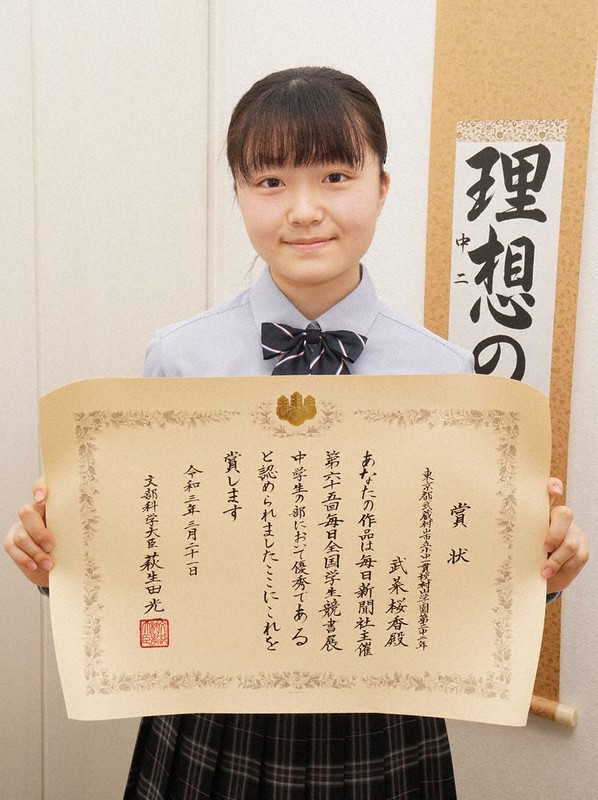 理想の
中二
賞状
東京都武蔵村山市立小中一貫校村山学園第二中二年
武菜桜香殿
あなたの作品は毎日新聞社主催
第六十五回毎日全国学生競書展
中学生の部において優秀である
と認められましたここにこれを
賞します
令和三年三月二十一日
文部科学大臣 萩生田光